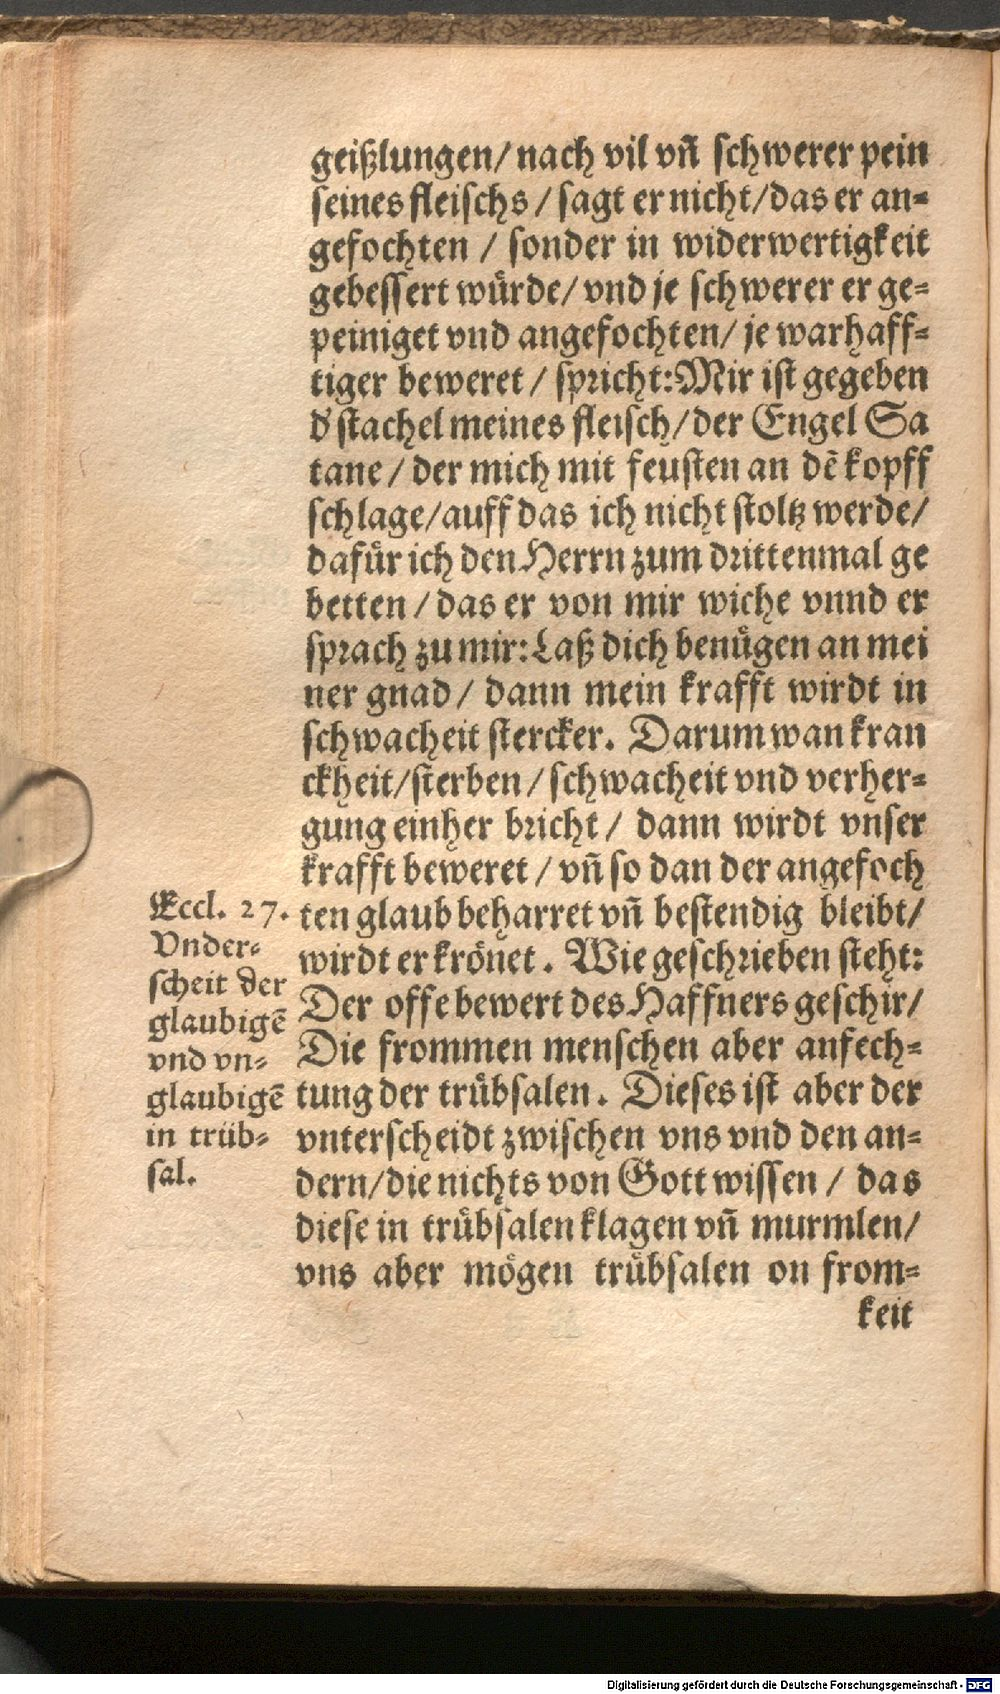 geißlungen/ nach vil vñ schwerer pein
seines fleischs / sagt er nicht/das er an-
gefochten / sonder in widerwertigkeit
gebessert wuͤrde/ vnd je schwerer er ge-
peiniget vnd angefochten/ je warhaff-
tiger beweret / spricht: Mir ist gegeben
d' stachel meines fleisch/der Engel Sa
tane / der mich mit feusten an dẽ kopff
schlage/auff das ich nicht stoltz werde/
dafuͤr ich den Herrn zum drittenmal ge
betten / das er von mir wiche vnnd er
sprach zu mir: Laß dich benuͤgen an mei
ner gnad / dann mein krafft wirdt in
schwacheit stercker. Darum wan kran
ckheit/sterben / schwacheit vnd verher-
gung einher bricht / dann wirdt vnser
krafft beweret / vñ so dan der angefoch
ten glaub beharret vñ bestendig bleibt/
wirdt er kroͤnet. Wie geschrieben steht:
Der offe bewert des Haffners geschir/
Die frommen menschen aber anfech-
tung der truͤbsalen. Dieses ist aber der
vnterscheidt zwischen vns vnd den an-
dern/die nichts von Gott wissen / das
diese in truͤbsalen klagen vñ murmlen/
vns aber moͤgen truͤbsalen on from-
keit
Eccl. 27.
Vnder-
scheit der
glaubigẽ
vnd vn-
glaubigẽ
in trüb-
sal.
Digitalisierung gefördert durch die Deutsche Forschungsgemeinschaft - DFG